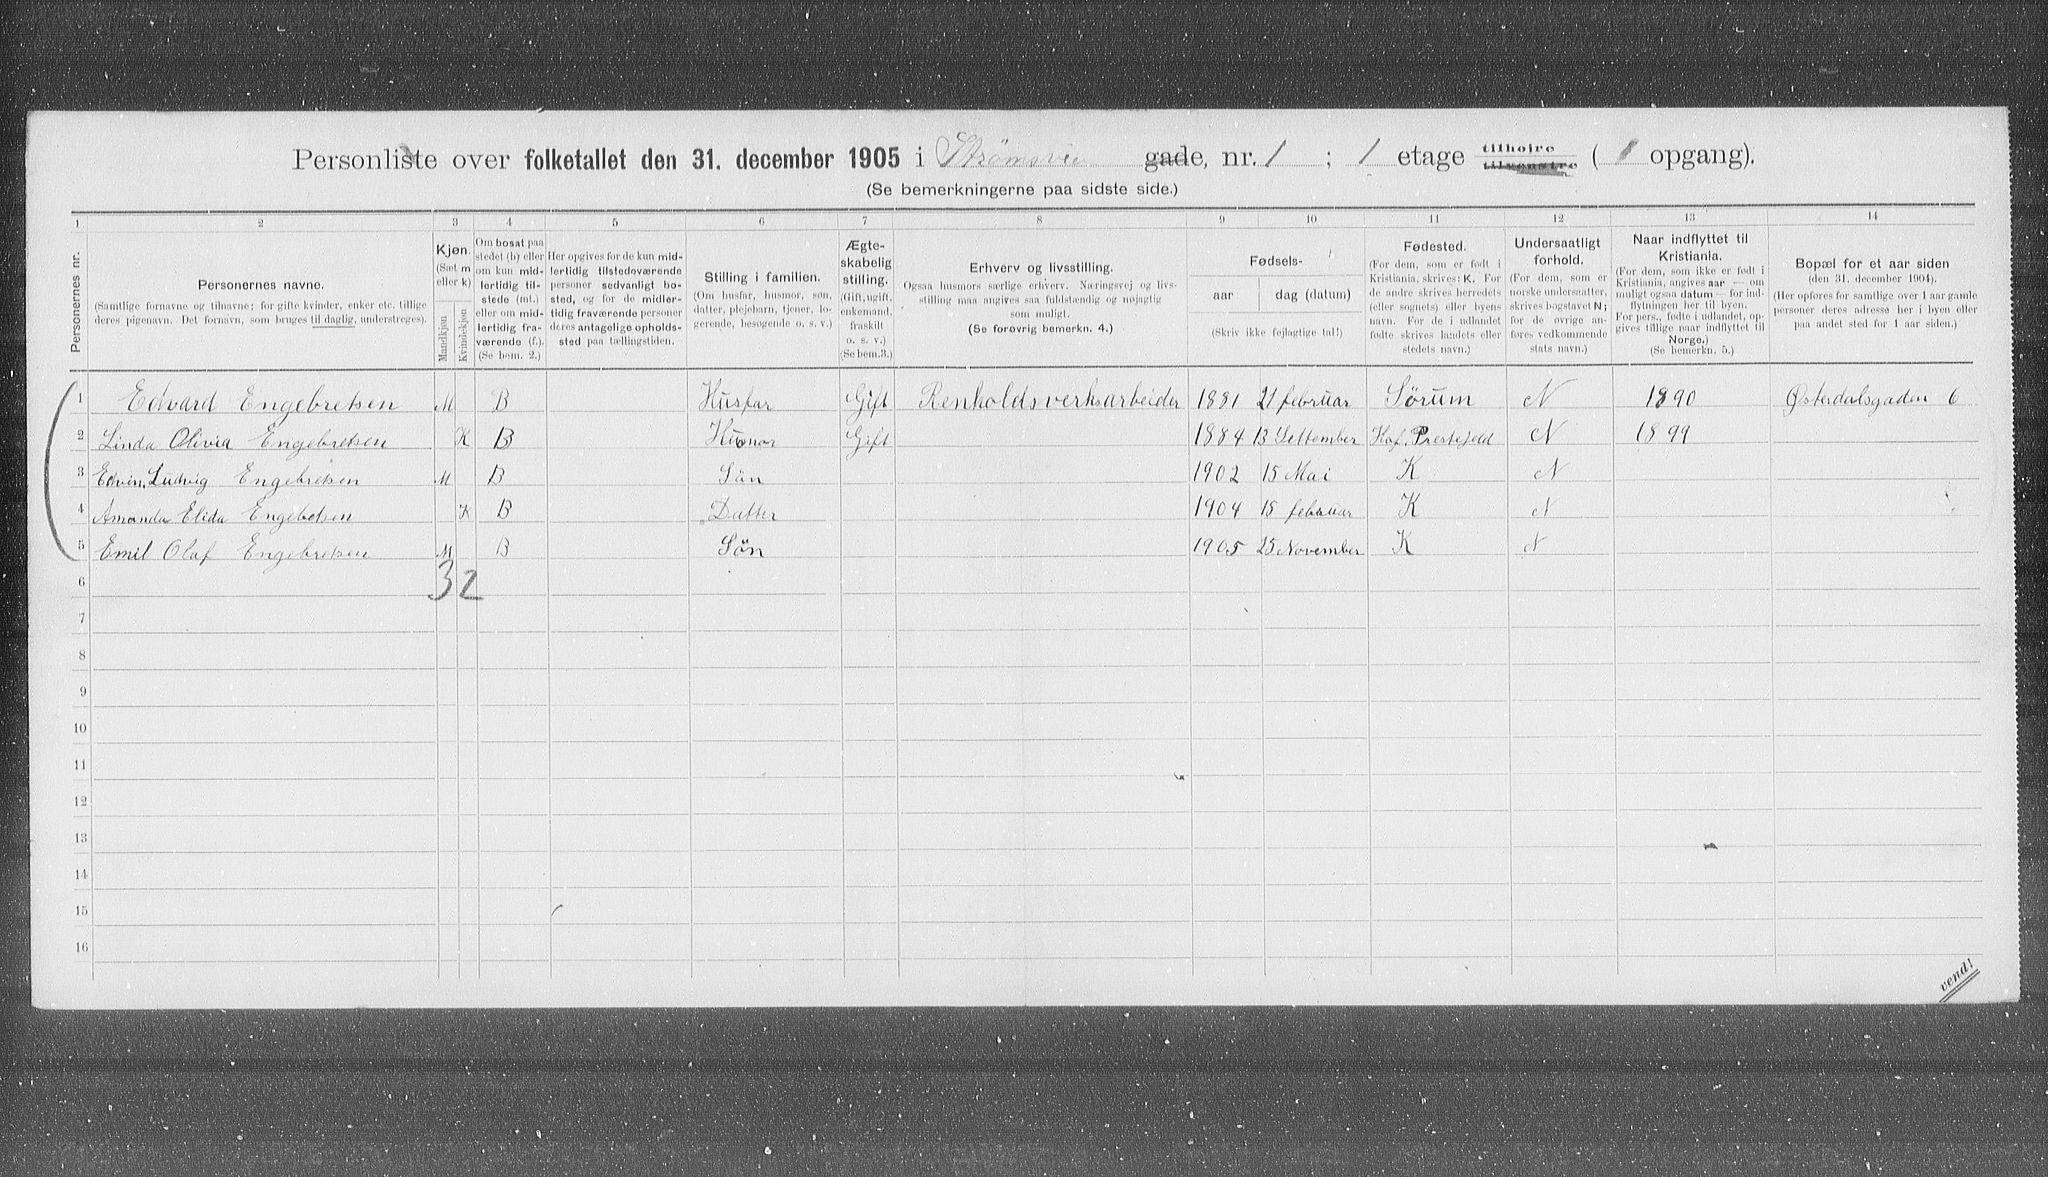 Personliste over folketallet den 31. december 1905 i Strømsvei gade, nr. 1 ; 1 etage tilhøire tilvenstre ( 1 opgang).
(Se bemerkningerne paa sidste side.)
1 2 3 4 5 6 7 8 9 10 11 12 13 14
Personernes nr.
Personernes navne.
(Samtlige fornavne og tilnavne; for gifte kvinder, enker etc. tillige
deres pigenavn. Det fornavn, som bruges til daglig, understreges).
Kjøn.
(Sæt m
eller k)
Mandkjøn
Kvindekjøn
Om bosat paa
stedet (b) eller
om kun mid-
lertidig til-
stede (mt.)
eller om mid-
lertidig fra-
værende (f.).
(Se bem. 2.)
Her opgives for de kun mid-
lertidig tilstedeværende
personer sedvanligt bo-
sted, og for de midler-
tidig fraværende personer
deres antagelige opholds-
sted paa tællingstiden.
Stilling i familien.
(Om husfar, husmor, søn,
datter, plejebarn, tjener, lo-
gerende, besøgende o. s. v.)
Ægte-
skabelig
stilling.
(Gift, ugift,
enkemand,
fraskilt
o. s. v.)
(Se bem.3.)
Erhverv og livsstilling.
Ogsaa husmors særlige erhverv. Næringsvej og livs-
stilling maa angives saa fuldstændig og nøjagtig
som muligt.
(Se forøvrig bemerkn. 4.)
Fødsels-
aar dag (datum)
(Skriv ikke fejlagtige tal!)
Fødested.
(For dem, som er født i
Kristiania, skrives: K. For
de andre skrives herredets
(eller sognets) eller byens
navn. For de i udlandet
fødte skrives landets eller
stedets navn.)
Undersaatligt
forhold.
(For dem, som er
norske undersaatter,
skrives bogstavet N;
for de øvrige an-
føres vedkommende
stats navn.)
Naar indflyttet til
Kristiania.
(For dem, som ikke er født i
Kristiania, angives aar — om
muligt ogsaa datum — for ind-
flytningen her til byen.
For pers., fødte i udlandet, op-
gives tillige naar indflyttet til
Norge.)
(Se bemerkn. 5.)
Bopæl for et aar siden
(den 31. december 1904).
(Her opføres for samtlige over 1 aar gamle
personer deres adresse her i byen eller
paa andet sted for 1 aar siden.)
1 Edvard Engebretsen M B Husfar Gift Renholdsverksarbeider 1881 21 februar Sörum N 1890 Østerdalsgaden 6
2 Linda Olivia Engebretsen K B Husmor Gift 1884 13 Settember Hof. Prestejeld N 1899
3 Edvin. Ludvig Engebretsen M B Sön 1902 15 Mai K N
4 Amanda Elida Engebetsen K B Datter 1904 15 februar K N
5 Emil Olaf Engebretsen M B Sön 1905 25 November K N
6 3 2
7
8
9
10
11
12
13
14
15
16
vend!